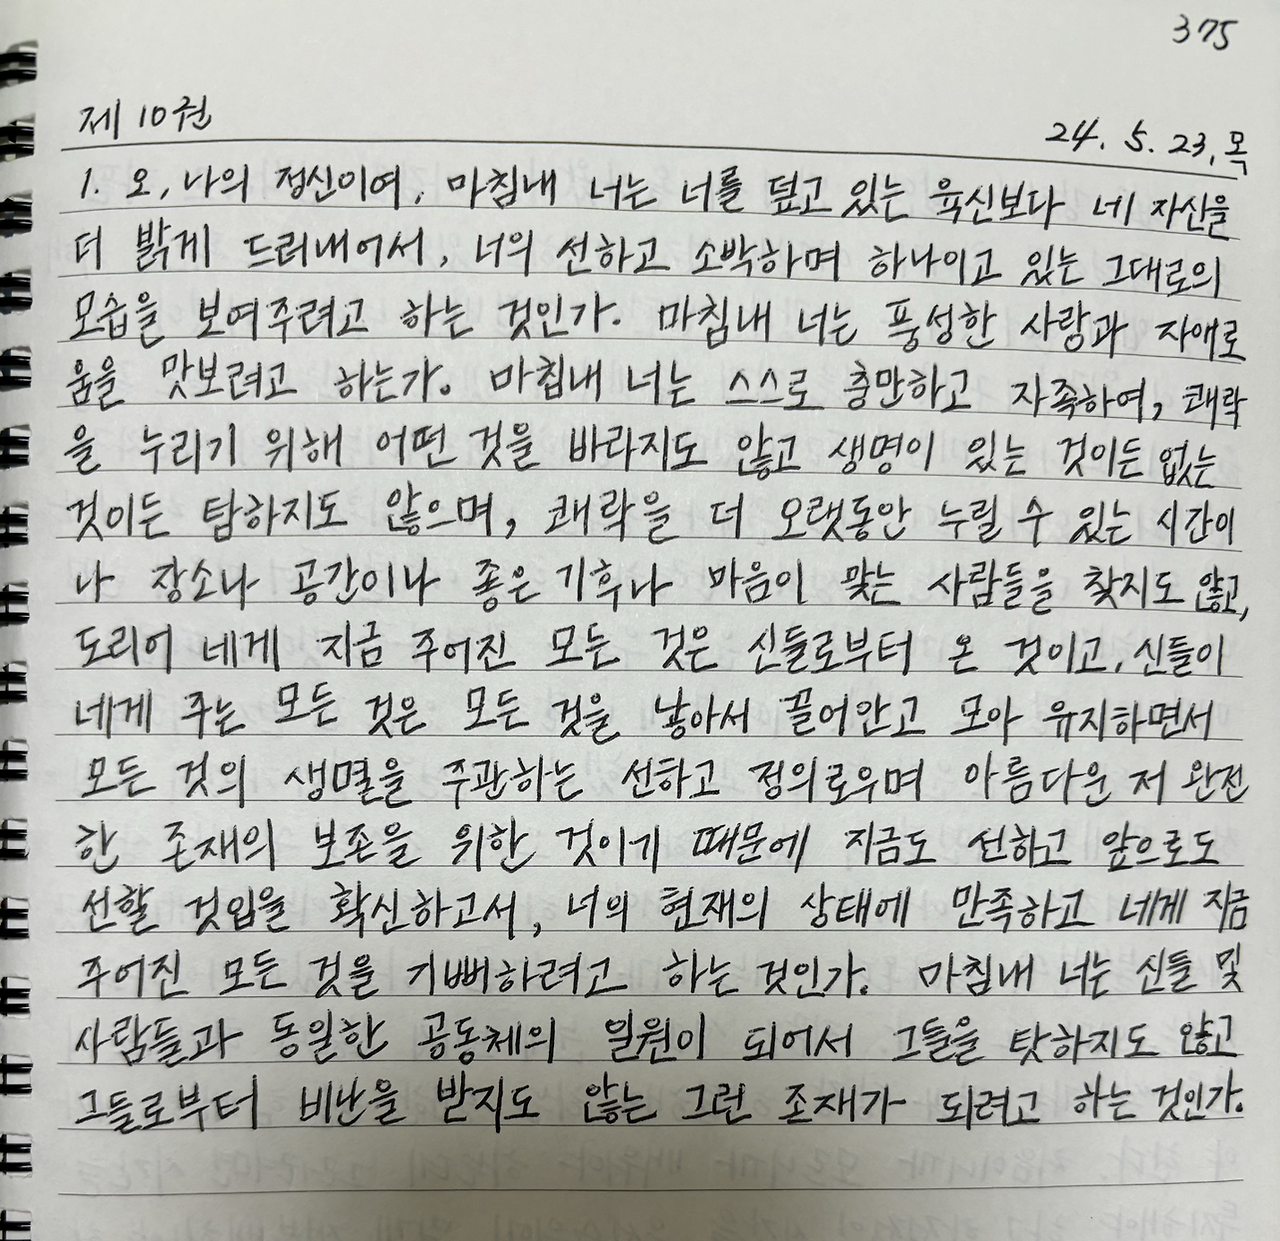 375
제 10권
24. 5. 23. 목
1. 오, 나의 정신이여, 마침내 너는 너를 덮고 있는 육신보다 네 자신을
더 밝게 드러내어서, 너의 선하고 소박하며 하나이고 있는 그대로의
모습을 보여주려고 하는 것인가. 마침내 너는 풍성한 사랑과 자애로
움을 맛보려고 하는가. 마침내 너는 스스로 충만하고 자족하여, 쾌락
을 누리기 위해 어떤 것을 바라지도 않고 생명이 있는 것이든 없는
것이든 탐하지도 않으며, 쾌락을 더 오랫동안 누릴 수 있는 시간이
나 장소나 공간이나 좋은 기후나 마음이 맞는 사람들을 찾지도 않고,
도리어 네게 지금 주어진 모든 것은 신들로부터 온 것이고, 신들이
네게 주는 모든 것은 모든 것을 낳아서 끌어안고 모아 유지하면서
모든 것의 생멸을 주관하는 선하고 정의로우며 아름다운 저 완전
한 존재의 보존을 위한 것이기 때문에 지금도 선하고 앞으로도
선할 것임을 확신하고서, 너의 현재의 상태에 만족하고 네게 지금
주어진 모든 것을 기뻐하려고 하는 것인가. 마침내 너는 신들 및
사람들과 동일한 공동체의 일원이 되어서 그들을 탓하지도 않고
그들로부터 비난을 받지도 않는 그런 존재가 되려고 하는 것인가.